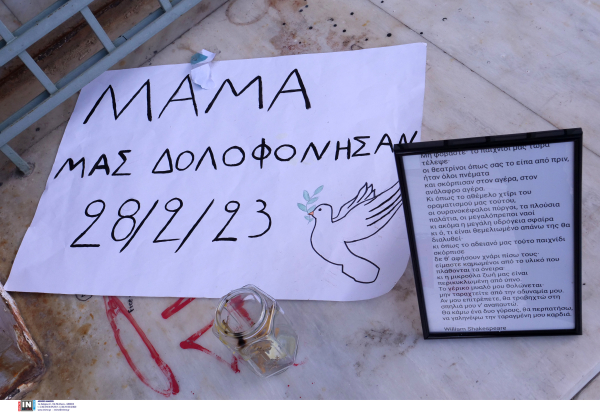 ΜΑΜΑ
ΜΑΣ ΔΟΛΟΦΟΝΗΣΑΝ
28/2/23
Μη φοράστε· το παιχνίδι μας τώρα
τέλεψε·
οι θεατρίνοι όπως σας το είπα από πριν,
ήταν όλοι πνέματα
και σκόρπισαν στον αγέρα, στον
ανάλαφρο αγέρα.
Κι όπως το αθέμελο χτίρι του
οραματισμού μας τούτου,
οι ουρανοκέφαλοι πύργοι, τα πλούσια
παλάτια, οι μεγαλόπρεποι ναοί
κι ακόμα η μεγάλη υδρόγεια σφαίρα
κι ό, τι είναι θεμελιωμένο απάνω της θα
διαλυθεί·
κι όπως το αδειανό μας τούτο παιχνίδι
σκόρπισε
δε θ' αφήσουν χνάρι πίσω τους·
είμαστε καμωμένοι από το υλικό που
πλάθονται τα όνειρα·
κι η μικρούλα ζωή μας είναι
περικυκλωμένη από ύπνο.
Το γέρικο μυαλό μου θολώνεται
μην ταραχτείτε από την αδυναμία μου.
Αν μου επιτρέπετε, θα τραβηχτώ στη
σπηλιά μου ν' αναπαυτώ
Θα κάμω ένα δυο γύρους, θα περπατήσω,
να γαληνέψω την ταραγμένη μου καρδιά.
William Shakespeare
IN